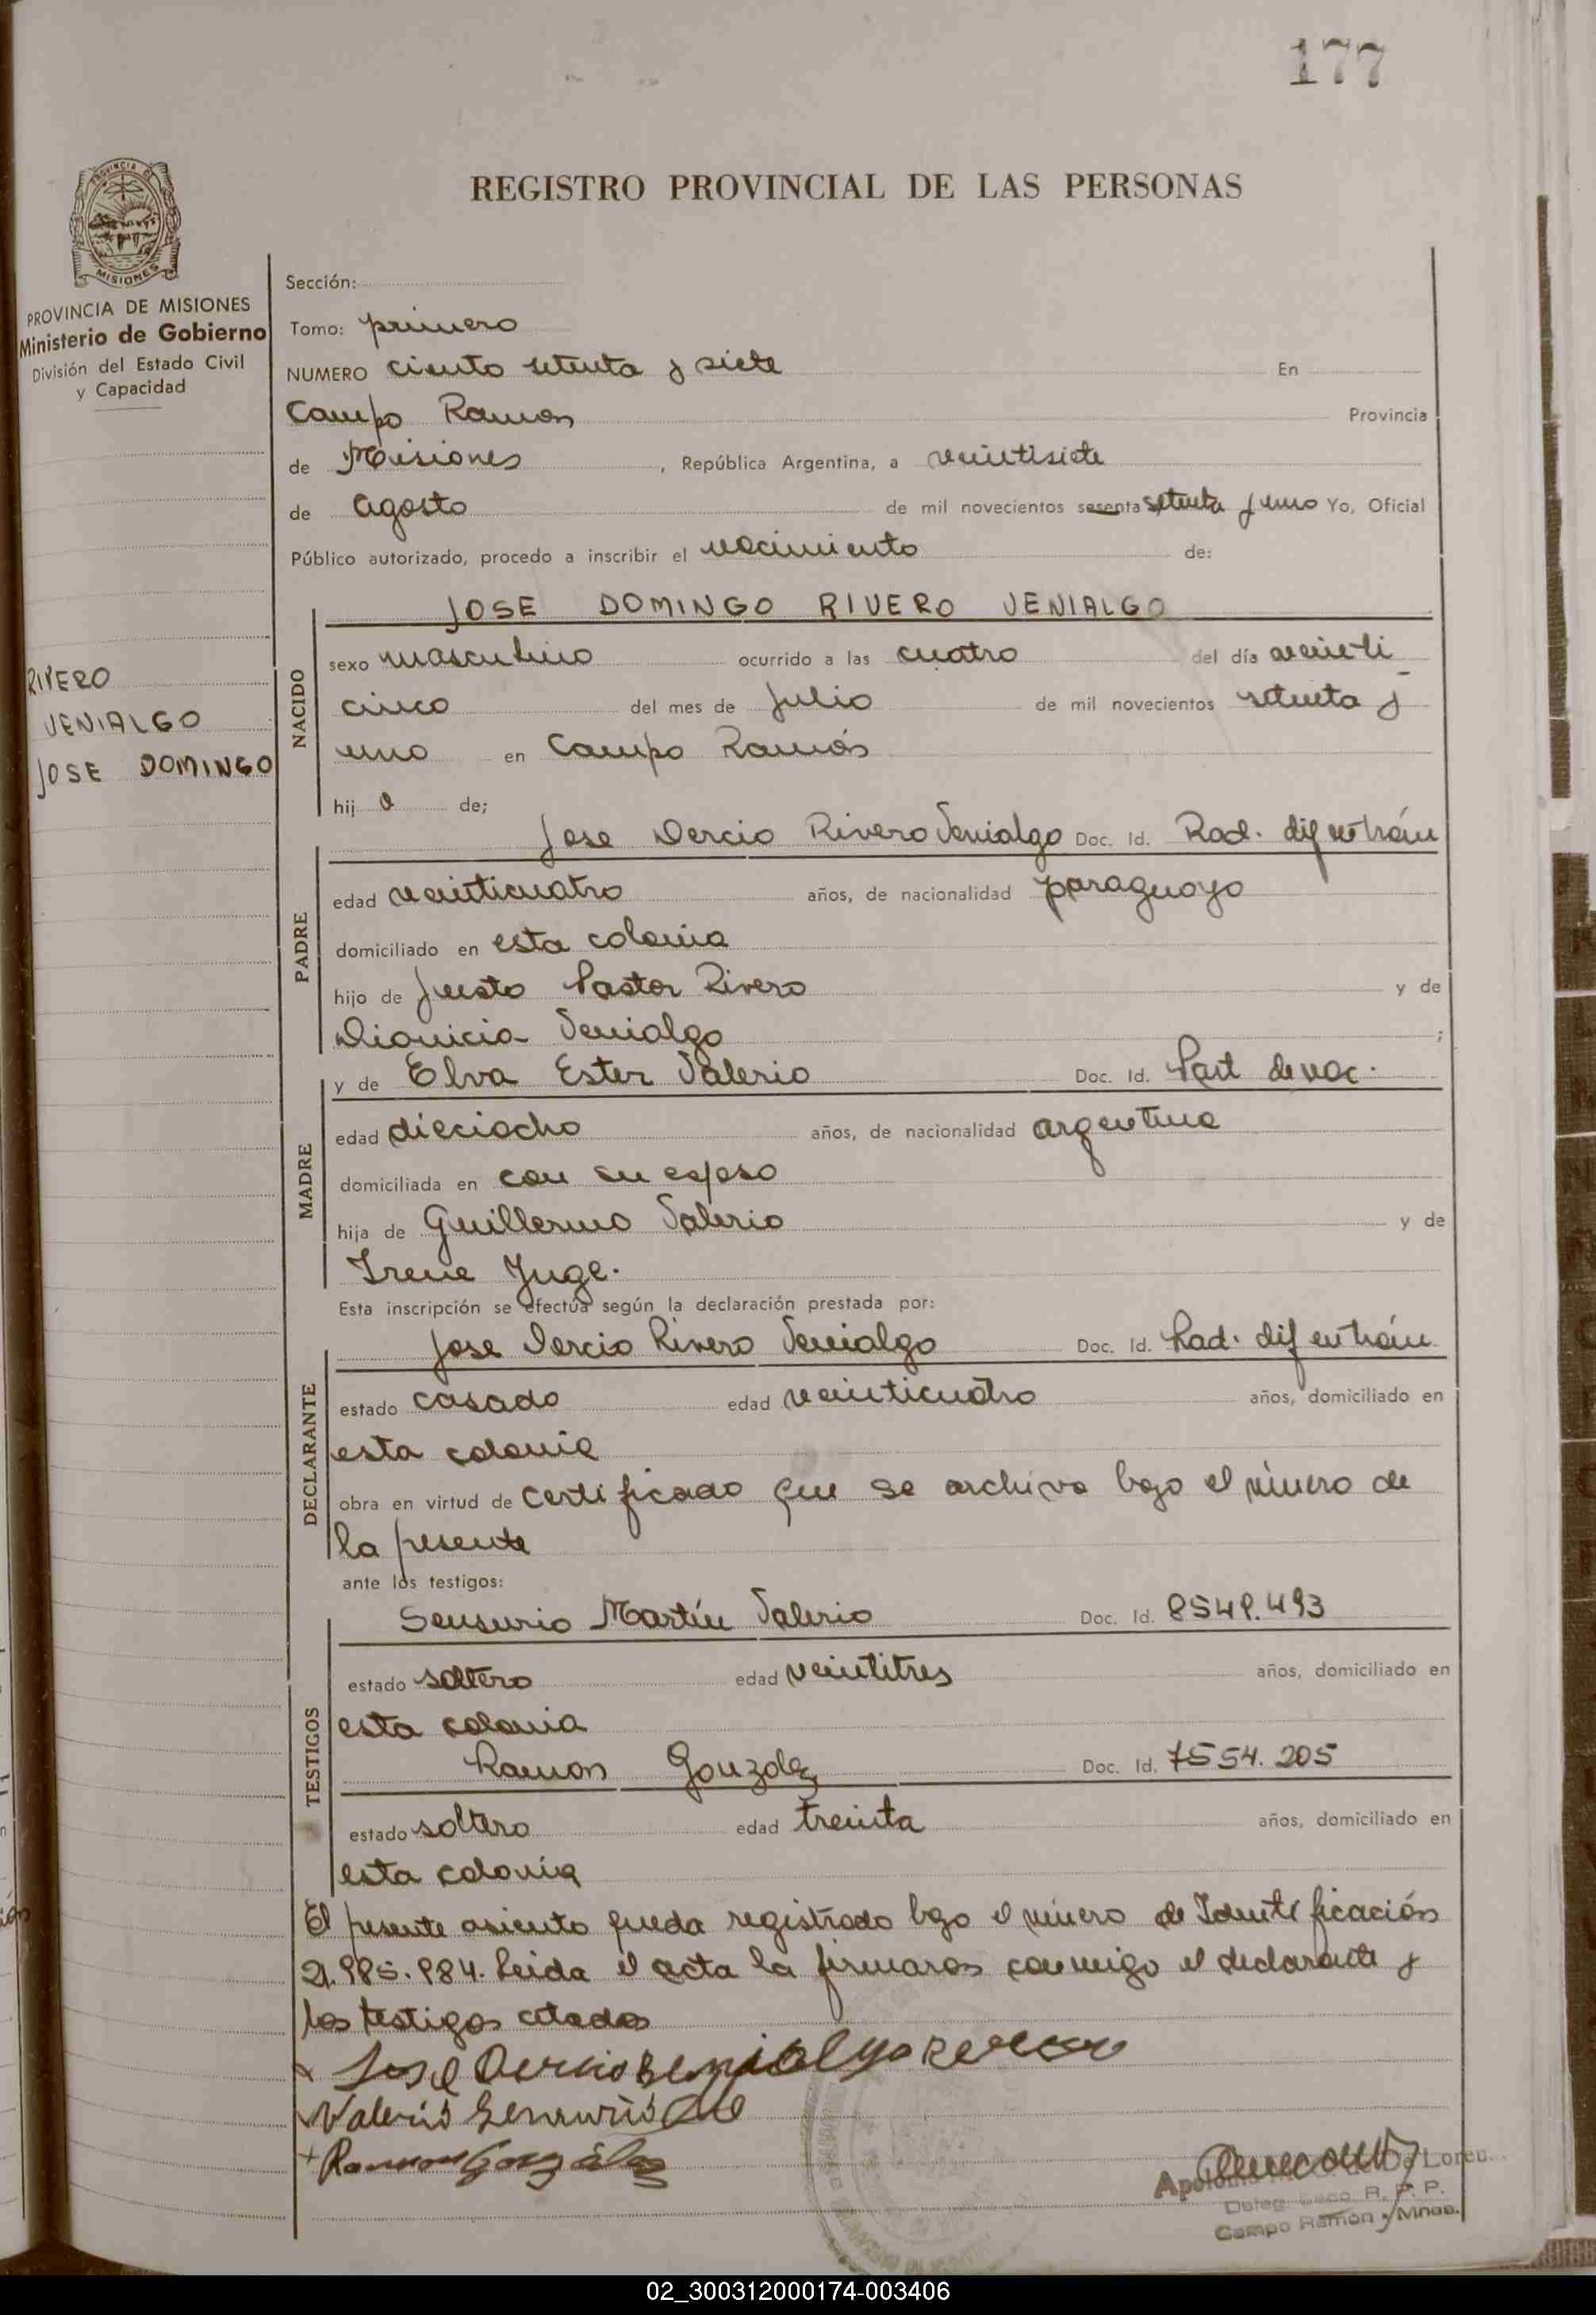 177
PROVINCIA DE
MISIONES
REGISTRO PROVINCIAL DE LAS PERSONAS
PROVINCIA DE MISIONES
Ministerio de Gobierno
División del Estado Civil
y Capacidad
RIVERO
VENIALGO
JOSE DOMINGO
Sección:
Tomo: primero
NUMERO ciento setenta y siete En
Campo Ramon Provincia
de Misiones, República Argentina, a veintisiete
de agosto de mil novecientos sesenta setenta y uno Yo, Oficial
Público autorizado, procedo a inscribir el nacimiento de:
NACIDO
JOSE DOMINGO RIVERO VENIALGO
sexo masculino ocurrido a las cuatro del día veinti
cinco del mes de julio de mil novecientos setenta y
uno en Campo Ramón
hij o de;
PADRE
Jose Dercio Rivero Venialgo Doc. Id. Rad. dif en trám
edad veinticuatro años, de nacionalidad paraguayo
domiciliado en esta colonia
hijo de Justo Pastor Rivero y de
Dionicia Venialgo ;
MADRE
y de Elva Ester Valerio Doc. Id. Part de nac.
edad dieciocho años, de nacionalidad argentina
domiciliada en con su esposo
hija de Guillermo Valerio y de
Irene Yuge.
Esta inscripción se efectúa según la declaración prestada por:
DECLARANTE
Jose Dercio Rivero Venialgo Doc. Id. Rad. dif en trám
estado casado edad veinticuatro años, domiciliado en
esta colonia
obra en virtud de certificado que se archiva bajo el número de
la presente
ante los testigos:
TESTIGOS
Sensurio Martín Valerio Doc. Id. 8549.493
estado soltero edad veintitres años, domiciliado en
esta colonia
Ramon Gonzalez Doc. Id. 7554.205
estado soltero edad treinta años, domiciliado en
esta colonia
El presente asiento queda registrado bajo el número de Identificación
21.985.984. Leida el acta la firmaron conmigo el declarante y
los testigos citados
Jose Dercio
Valerio Sensurio
Ramon González
Campo Ramón Mnes.
02_300312000174-003406